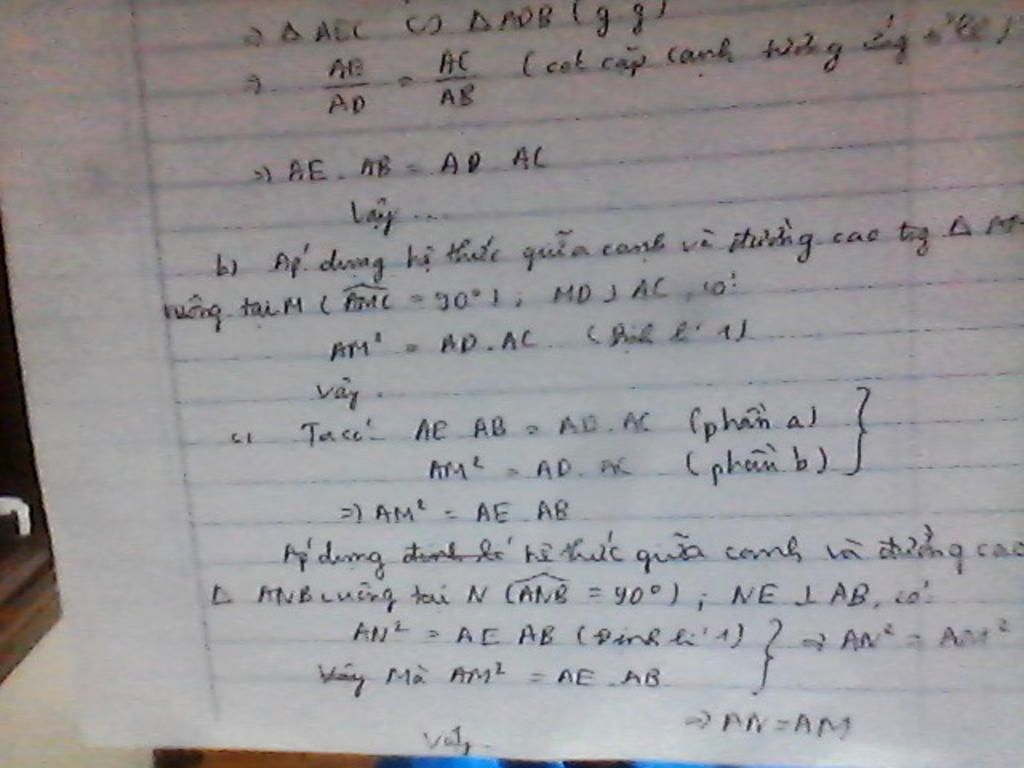 => Δ AEC ∽ Δ ADB (g.g)
=> AE/AD = AC/AB (các cặp cạnh tương ứng tỉ lệ)
=> AE . AB = AD . AC
Vậy ...
b) Áp dụng hệ thức giữa cạnh và đường cao trg Δ
vuông tại M (AMC = 90°) ; MD ⊥ AC, có:
AM² = AD . AC (Định lí 1)
Vậy .
c) Ta có: AE AB = AD . AC (phần a)
AM² = AD . AC (phần b) }
=> AM² = AE AB
Áp dụng định lí hệ thức giữa cạnh và đường cao
Δ ANB vuông tại N (ANB = 90°) ; NE ⊥ AB, có:
AN² = AE AB (Định lí 1) } => AN² = AM²
Vậy Mà AM² = AE . AB
=> AN = AM
Vậy.